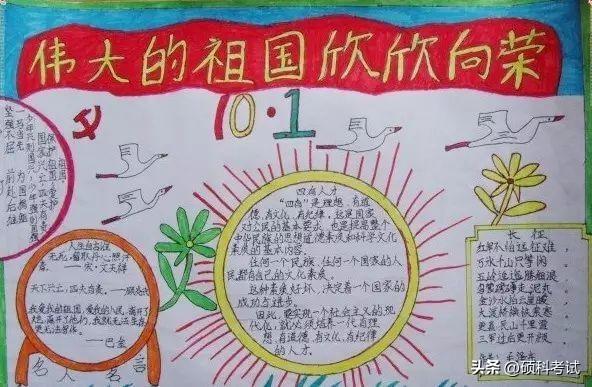 伟大的祖国欣欣向荣
10·1
国家兴亡,匹夫有责
少年兴则国兴,少年强则国强
一马当先 为国捐躯
坚强不屈 前赴后继
人生自古谁
无死,留取丹心照汗
青。 宋·文天祥
天下兴亡,匹夫有责。——顾炎武
我爱我的祖国,爱我的人民,离开了
她,离开了他们,我就无法生存,
更无法写作。
——巴金
名人名言
四有人才
“四有”是理想,有道
德,有文化,有纪律,这是国家
对公民的基本要求,也是提高整个
中华民族的思想道德素质和科学文化
素质的基本内容。
任何一个民族,任何一个国家的人
民都有自己的文化素质。
这种素质好坏,决定着一个国家的
成功与进步。
因此,要实现一个社会主义的现
代化,就必须培养一代有理
想,有道德,有文化,有纪律
的人才。
长征
红军不怕远征难,
万水千山只等闲
五岭逶迤腾细浪
乌蒙磅礴走泥丸
金沙水拍云崖暖
大渡桥横铁索寒
更喜岷山千里雪
三军过后尽开颜
头条 @硕科考试